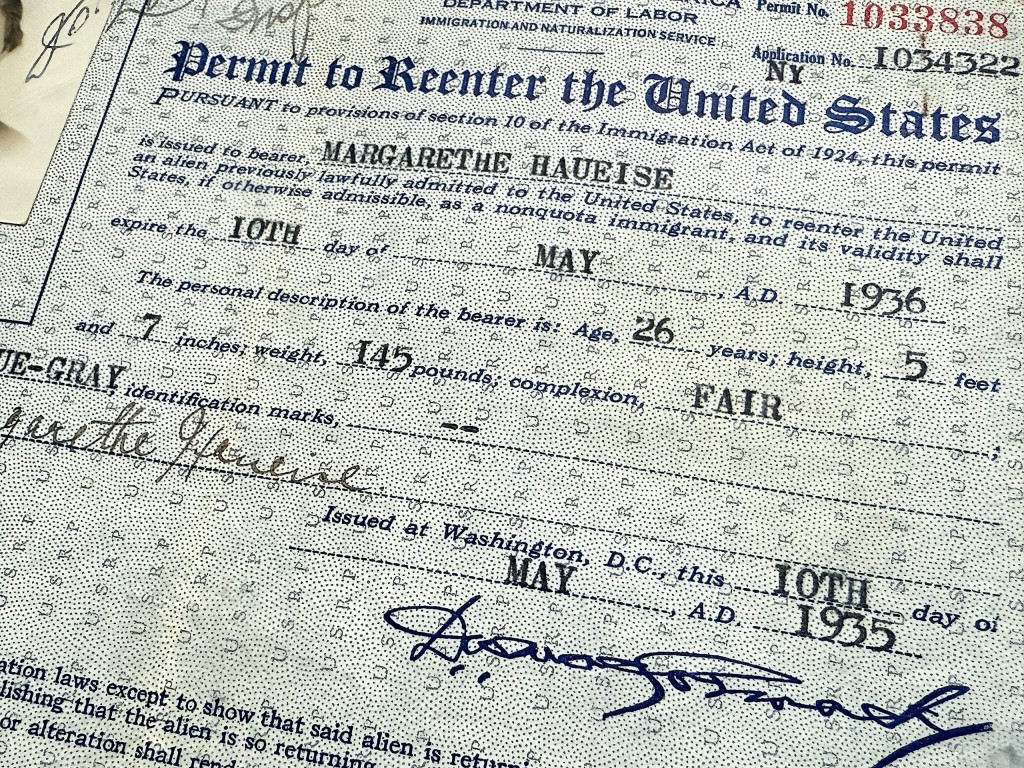 DEPARTMENT OF LABOR
IMMIGRATION AND NATURALIZATION SERVICE
Permit No. 1033838
Application No. 1034322
NY
Permit to Reenter the United States
PURSUANT to provisions of section 10 of the Immigration Act of 1924, this permit
is issued to bearer, MARGARETHE HAUEISE
an alien previously lawfully admitted to the United States, to reenter the United
States, if otherwise admissible, as a nonquota immigrant, and its validity shall
expire the 10TH day of MAY, A.D. 1936
The personal description of the bearer is: Age, 26 years; height, 5 feet
and 7 inches; weight, 145 pounds; complexion, FAIR;
UE-GRAY, identification marks, --
garethe Haueise
Issued at Washington, D.C., this 10TH day of
MAY, A.D. 1935
ation laws except to show that said alien is return
lishing that the alien is so returning
or alteration shall rend